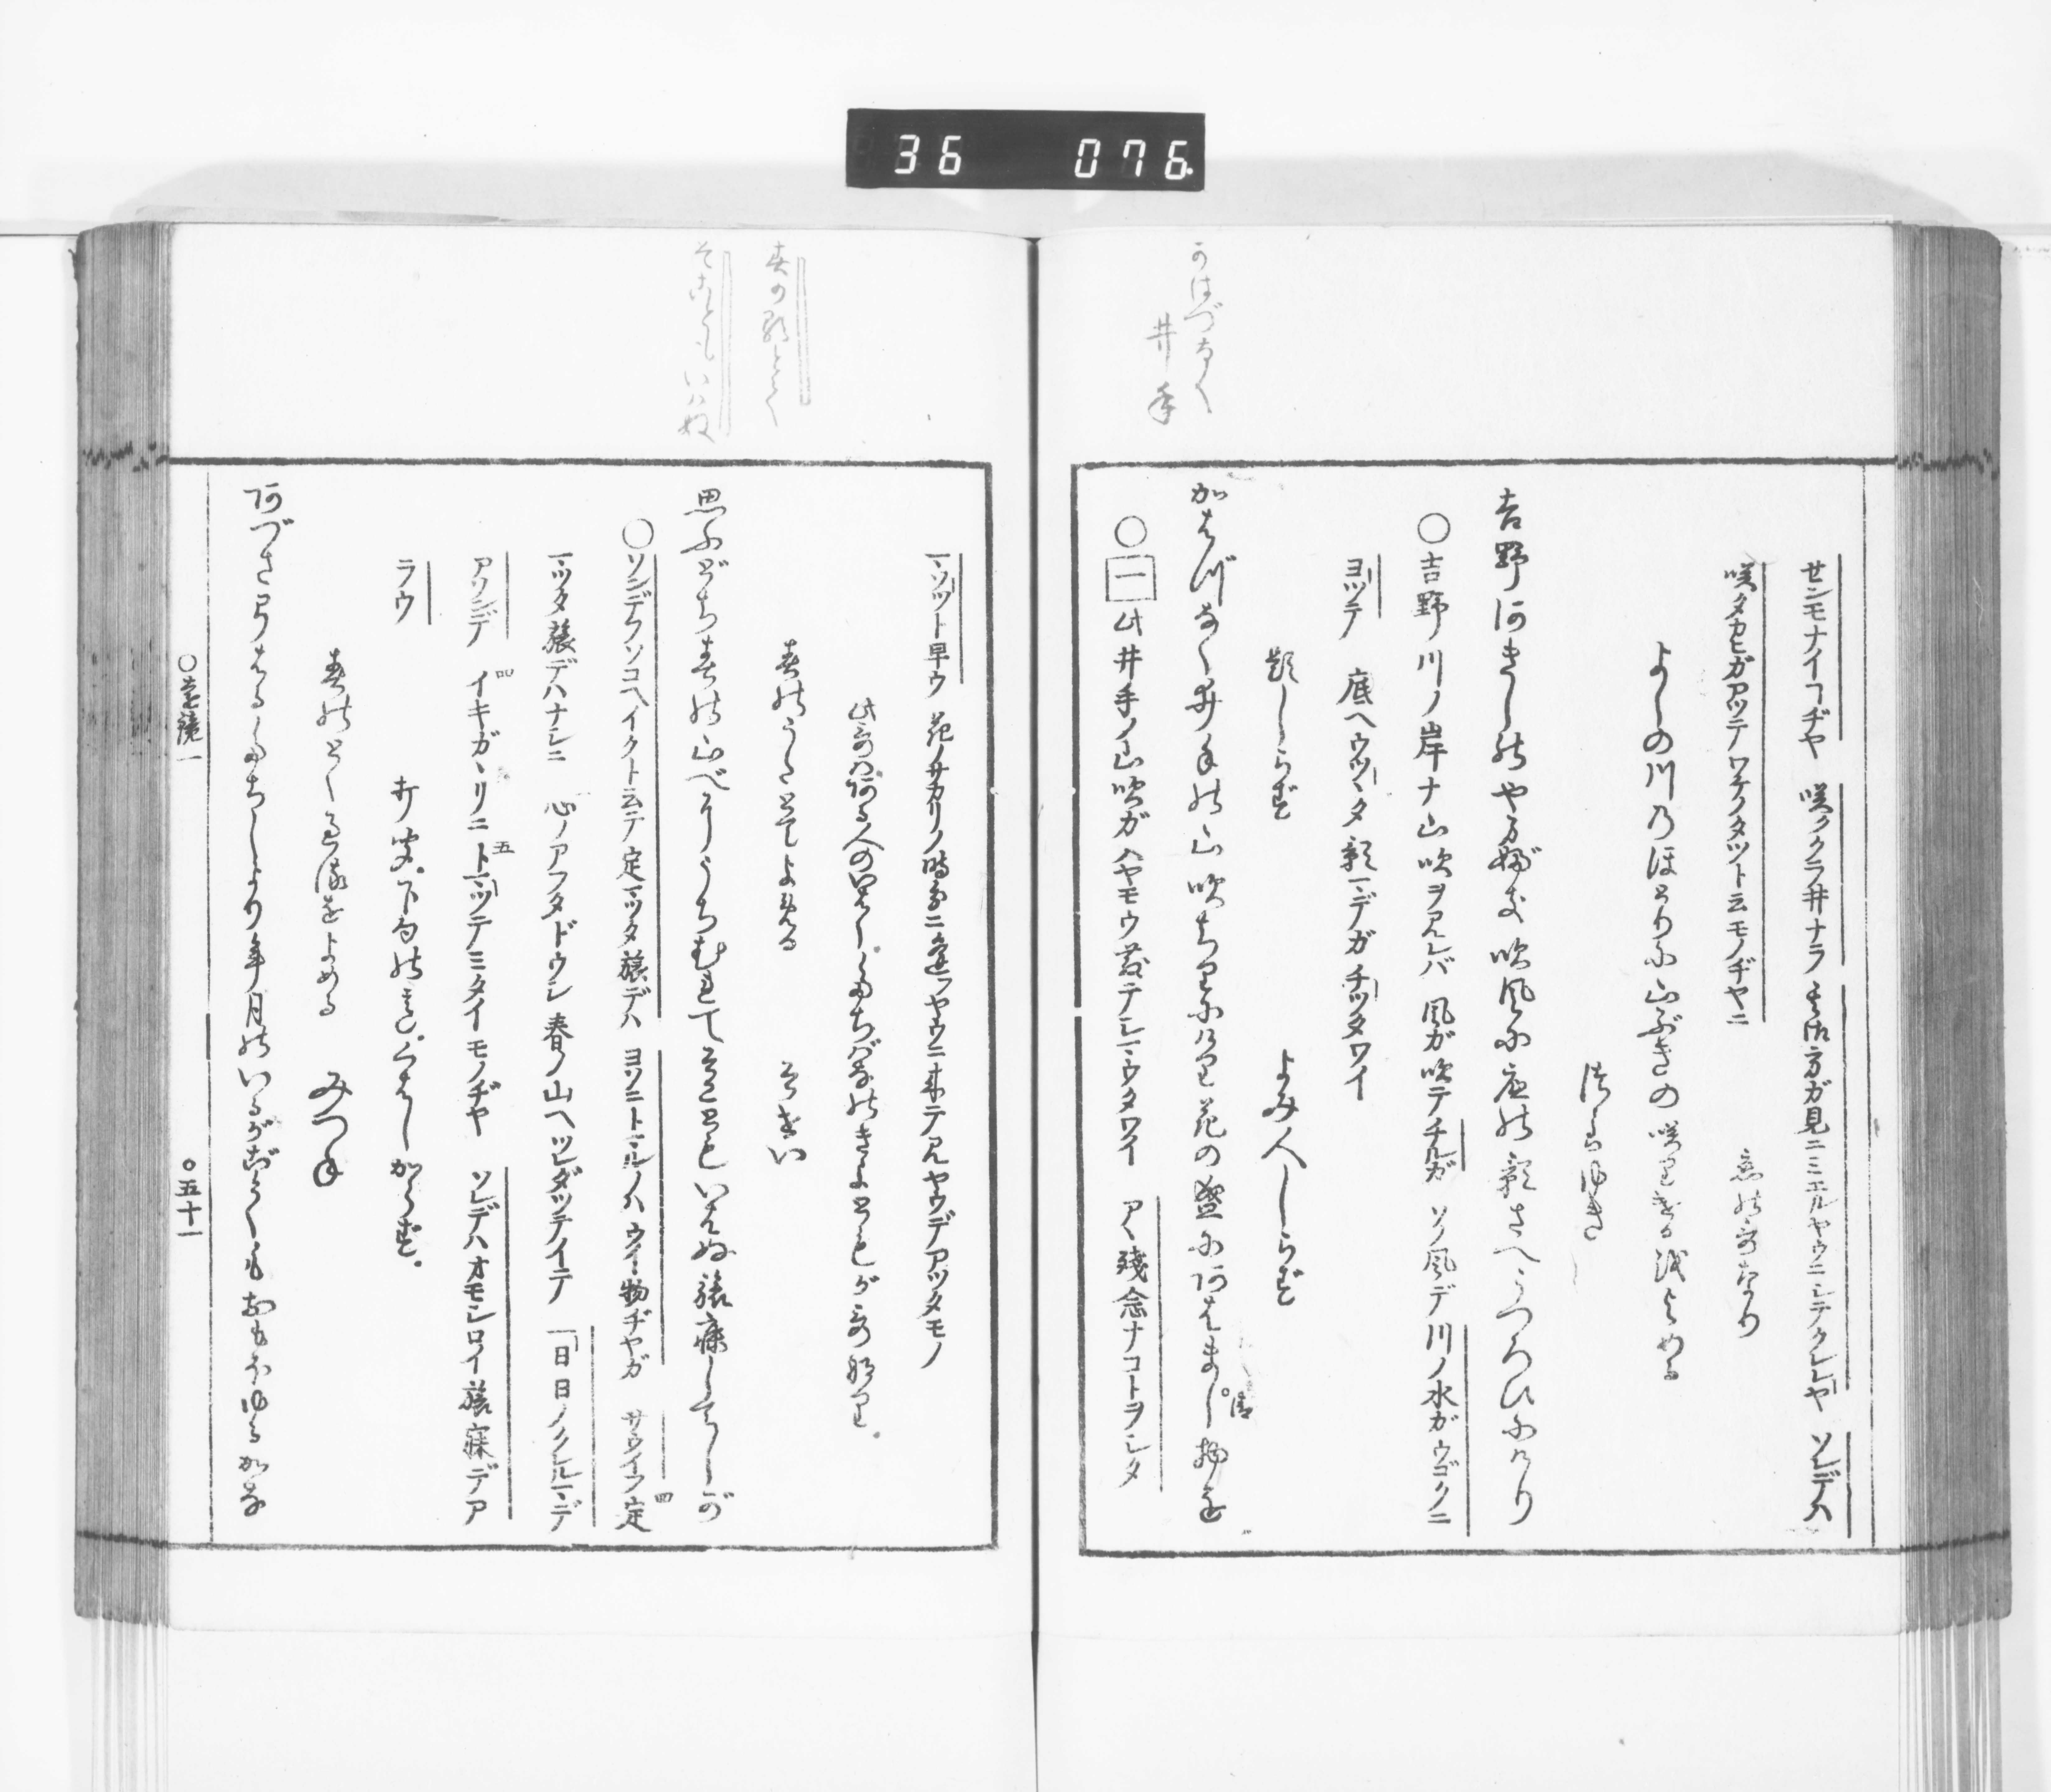 36 076
かはづなく
井手
センモナイコヂヤ 咲ククラ井ナラ 其御方ガ見ニミエルヤウニシテクレヤ ソレデハ
咲タカヒガアツテ ワケノタツト云モノヂヤニ
よしの川のほとりに山ぶきの咲りけるをよめる
つらゆき
吉野河きしのやまぶき吹風に底の影さへうつろひにけり
○吉野川ノ岸ナ山吹ヲアレバ 風ガ吹テチルガ ソノ風デ川ノ水ガウゴクニ
ヨツテ 底ヘウツヽタ影マデガチツタワイ
題しらず よみ人しらず
かはづなく井手の山吹ちりにけり花の盛にあはまし物を
○一此井手ノ山吹ガハヤモウ散テシマウタワイ アヽ残念ナコトヲシタ
マソツト早ウ 花ノサカリノ時分ニ逢フヤウニ来テアルヤウデアツタモノ
此哥はある人のいはくたちばなのきよともが哥なり。
春のうたとてよめる そせい
思ふどち春の山べにうちむれてそこともいはぬ旅寐してしが
○ソンデウソコヘイクト云テ定マツタ旅デハ ヨソニトマルノハウイ物ヂヤガ サウイフ定
マツタ旅デハナシニ 心ノアフタドウシ 春ノ山ヘツレダツテイテ 一日日ノクルヽマデ
アソンデ イキガヽリニトマツテミタイモノヂヤ ソレデハオモシロイ旅寐デア
ラウ
打聞。下句の
春のとく過るをよめる みつね
あづさ弓はるたちしより年月のいるがごとくもおもほゆるかな
春の歌とて
そこともいはぬ
○遠鏡一 ○五十一